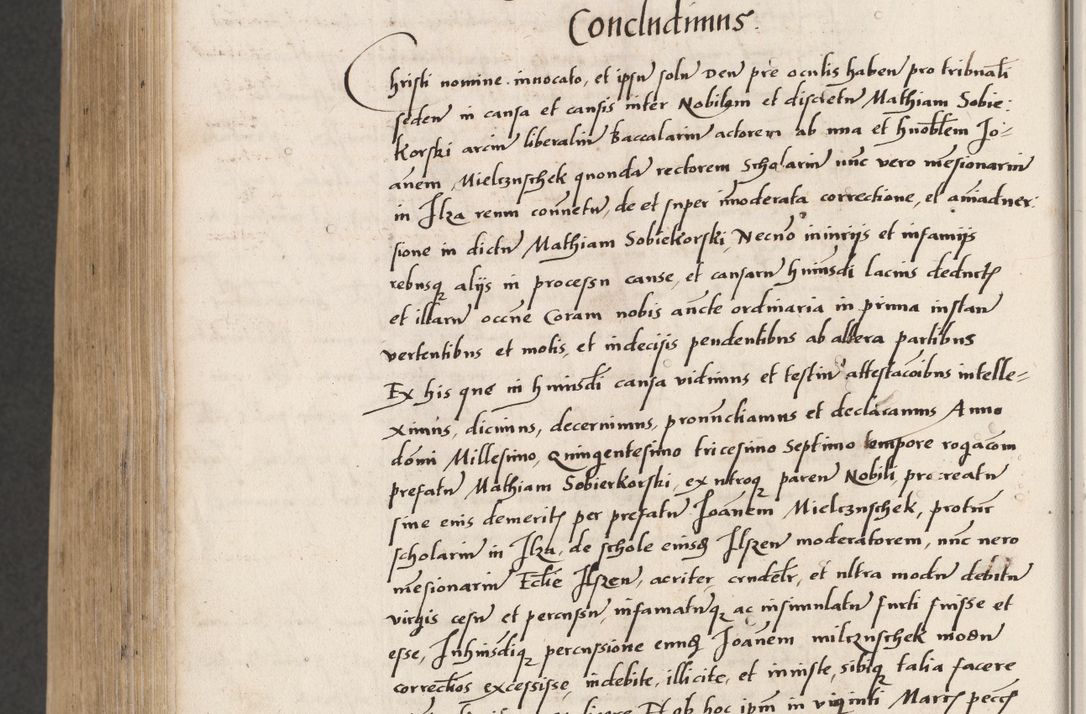 Concludimus
Christi nomine invocato, et ipsu solu Deu pre oculis haben pro tribunali
seden in causa et causis inter Nobilem et discretu Mathiam Sobie:
Korski arciu liberaliu Baccalariu actorem ab una et hnoblem Jo=
anem Mielcznschek quonda rectorem Scholariu nnc vero mesionariu
in Jlza reum connetu, de et super imoderata correctione, et aniaduer:
sione in dictu Mathiam Sobiekorski, Necno iniurijs et infamijs
rebusq alijs in processu cause, et causaru huiusdi lacius deductis
et illaru occne Coram nobis ancte ordinaria in prima instan
vertentibus et motis, et indecisis pendentibus ab altera partibus
Ex his que in huiusdi causa vidimus et testiu attestacoibus intelle=
ximus, dicimus, decernimus, pronunctiamus et declaramus Anno
domi Millesimo, Quingentesimo tricesimo Septimo tempore rogacom
prefatu Mathiam Sobierkorski, ex utroq paren Nobili procreatu
sine eius demeritis per prefatu Joanem Mielcznschek, protunc
scholariu in Jlza, de schole eiusq Jlszen moderatorem, nnc vero
mesionariu Eclie Jlszen, acriter crudelr, et ultra modu debitu
virgis cesu et percussu, infamatuq ac insimulatu furti fuisse et
esse, Jnhuiusdiq percussione eunq Joanem milcznschek modu
correctios excessisse, indebite, illicite, et iniuste, sibiq talia facere
licere Et ob hoc ipm in viginti Marcis pecc